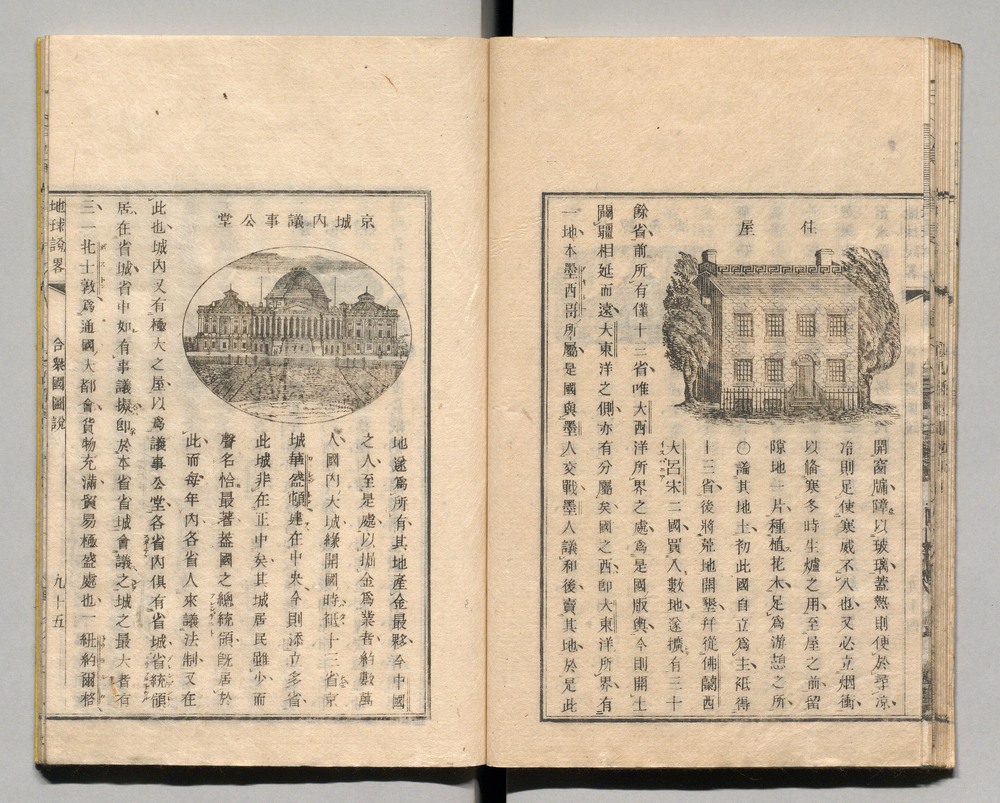 住屋
開窗牖障以玻璃蓋熱則便於尋涼
冷則足使寒威不入也又必立烟衝
以備寒冬時生爐之用至屋之前留
隙地一片種植花木足為游憩之所
〇議其地土初此國自立為主祗得
十三省後將荒地開墾幷從佛蘭西
大呂宋二國買入數地遂擴有三十
餘省前所有僅十三省唯大西洋所界之處為是國版輿今則開土
闢疆相延而遠大東洋之側亦有分屬矣國之西卽大東洋所界有
一地本墨西哥所屬是國與墨人交戰墨人議和後賣其地於是此
京城內議事公堂
地遂為所有其地產金最夥今中國
之人至是處以掘金為業者約數萬
人國內大城緣開國時祗十三省京
城華盛頓建在中央今則添立多省
此城非在正中矣其城居民雖少而
聲名恰最著蓋國之總統領旣居於
此而每年內各省人來議法制又在
此也城內又有極大之屋以為議事公堂各省內俱有省城省統領
居在省城省中如有事議擬卽於本省省城會議之城之最大者有
三一北士敦為通國大都會貨物充滿貿易極盛處也一紐約爾格
地球說畧
合衆國圖說
九十五